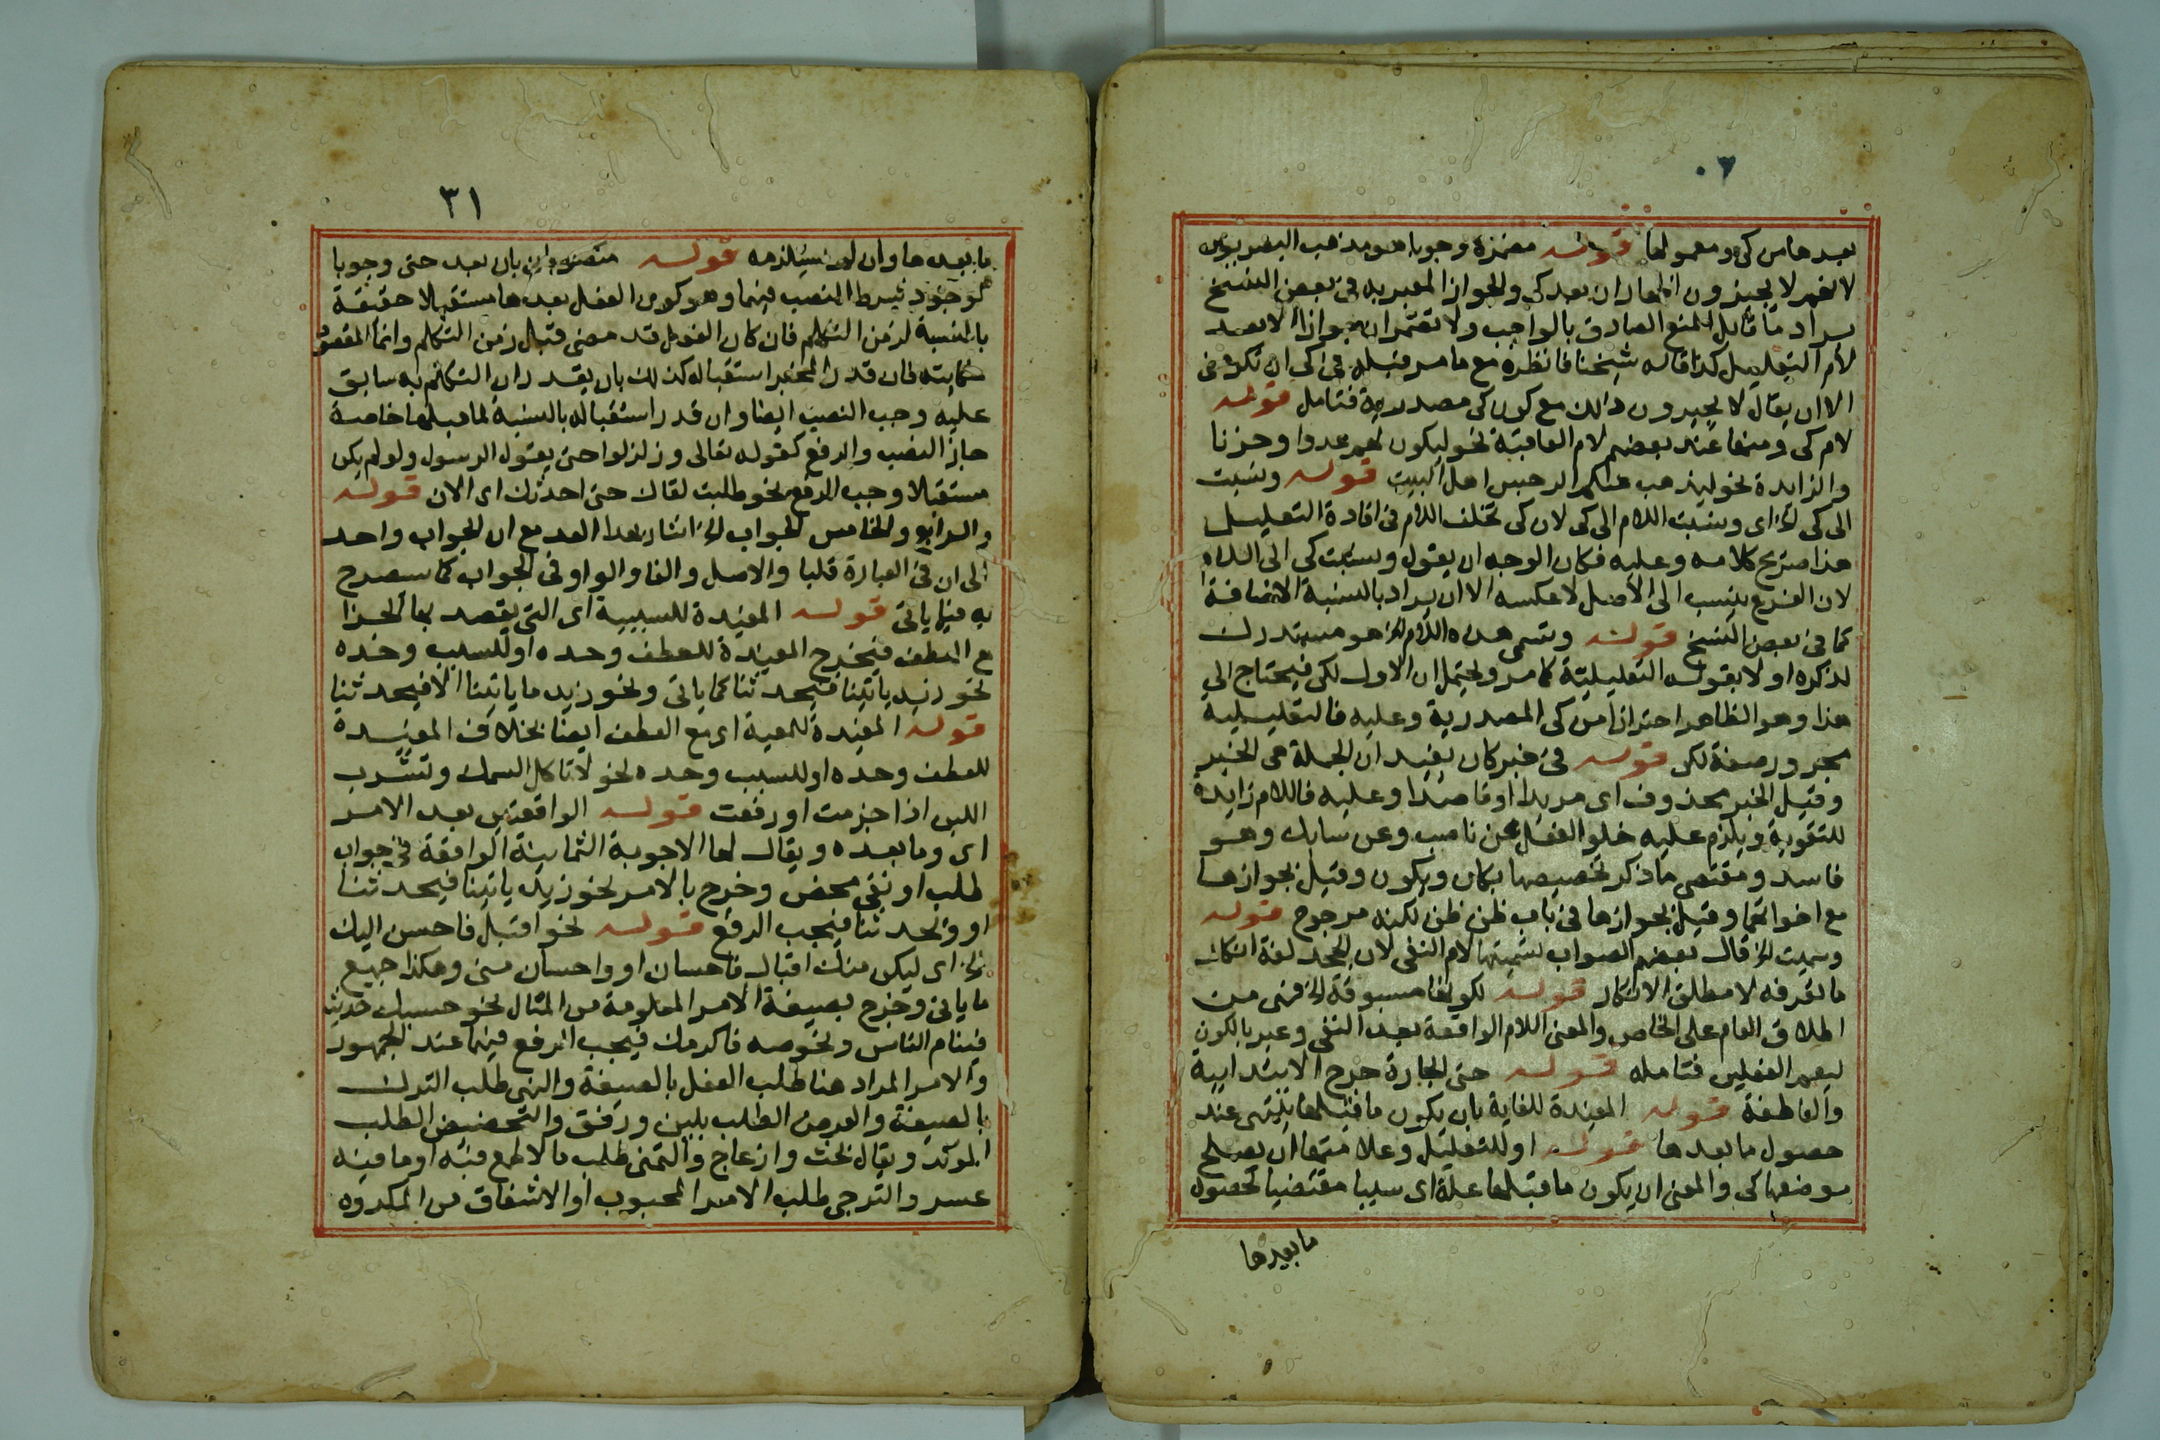 بعدها من كى ومعمولها قوله مضمرة وجوبا هو مذهب البصريين
لانهم لا يجيزون اظهار ان بعد كى والجواز المعبر به فى بعض النسخ
يراد ما قابل المنع الصادق بالواجب ولا تضمر ان جوازا الا بعد
لام التعليل كذا قاله شيخنا فانظره مع ما مر قبله فى كى ان تكون فى
الا ان يقال لا يجيزون ذلك مع كون كى مصدرية فتامل قوله
لام كى ومنها عند بعضهم لام العاقبة نحو ليكون لهم عدوا وحزنا
والزايدة نحو ليذهب عنكم الرجس اهل البيت قوله ونسبت
الى كى الخ اى ونسبت اللام الى كى لان كى تخلف اللام فى افادة التعليل
هذا صريح كلامه وعليه فكان الوجه ان يقول ونسبت كى الى اللام
لان الفرع ينسب الى الاصل لا عكسه الا ان يراد بالنسبة الاضافة
كما فى بعض النسخ قوله وتسمى هذه اللام الخ هو مستدرك
لذكره اولا بقوله التعليلية كما مر ويحتمل ان الاول لكى فيحتاج الى
هذا وهو الظاهر احترازا من كى المصدرية وعليه فالتعليلية
مجرور صفة لكى قوله فى خبر كان يفيد ان الجملة هى الخبر
وقيل الخبر محذوف اى مريدا او قاصدا وعليه فاللام زايدة
للتقوية ويلزم عليه خلو الفعل عن ناصب وعن سابك وهو
فاسد ومقتضى ما ذكر تخصيصها بكان ويكون وقيل بجوازها
مع اخواتها وقيل بجوازها فى باب ظن ظن لكنه مرجوح قوله
وسميت الخ قال بعضهم الصواب تسميتها لام النفى لان الجحد لغة انكار
ما تعرفه لا مطلق الانكار قوله لكونها مسبوقة الخ فهى من
اطلاق العام على الخاص والمعنى اللام الواقعة بعد النفى وعبر بالكون
ليعم الفعلين فتامله قوله حتى الجارة خرج الابتدايية
والعاطفة قوله المفيدة للغاية بان يكون ما قبلها ينتهى عند
حصول ما بعدها قوله او للتعليل وعلامتها ان يصلح
موضعها كى والمعنى ان يكون ما قبلها علة اى سببا مقتضيا لحصول
ما بعدها
٣١
ما بعدها وان لم يستلزمه قوله بان بعد حتى وجوبا
لوجود شرط النصب فيهما وهو كون الفعل بعدها مستقبلا حقيقة
بالنسبة لزمن التكلم فان كان الفعل قد مضى قبل زمن التكلم وانما المقصود
حكايته فان قدر المخبر استقباله كذلك بان يقدر ان التكلم به سابق
عليه وجب النصب ايضا وان قدر استقباله بالنسبة لما قبلها خاصة
جاز النصب والرفع كقوله تعالى وزلزلوا حتى يقول الرسول ولو لم يكن
مستقبلا وجب الرفع نحو طلبت لقاك حتى احدثك اى الان قوله
والرابع والخامس الجواب الخ اشار بهذا العد مع ان الجواب واحد
الى ان فى العبارة قلبا والاصل والفا والواو فى الجواب كما سيصرح
به فيما ياتى قوله المفيدة للسببية اى التى يقصد بها الجزا
مع العطف فيخرج المفيدة للعطف وحده او للسبب وحده
نحو زيد ياتينا فيحدثنا كما ياتى ونحو زيد ما ياتينا الا فيحدثنا
قوله المفيدة للمعية اى مع العطف ايضا بخلاف المفيدة
للعطف وحده او للسبب وحده نحو لا تاكل السمك وتشرب
اللبن اذا جزمت او رفعت قوله الواقعتين بعد الامر
اى وما بعده ويقال لها الاجوبة الثمانية الواقعة فى جواب
طلب او نفى محض وخرج بالامر نحو زيد ياتينا فيحدثنا
او ويحدثنا فيجب الرفع قوله نحو اقبل فاحسن اليك
الخ اى ليكن منك اقبال فاحسان او واحسان منى وهكذا جميع
ما ياتى وخرج بصيغة الامر المعلومة من المثال نحو حسبك حديث
فينام الناس ونحو صه فاكرمك فيجب الرفع فيهما عند الجمهور
والامر المراد هنا طلب الفعل بالصيغة والنهى طلب الترك
بالصيغة والعرض الطلب بلين ورفق والتحضيض الطلب
المؤكد ويقال بحث وازعاج والتمنى طلب ما لا طمع فيه او ما فيه
عسر والترجى طلب الامر المحبوب او الاشفاق من المكروه